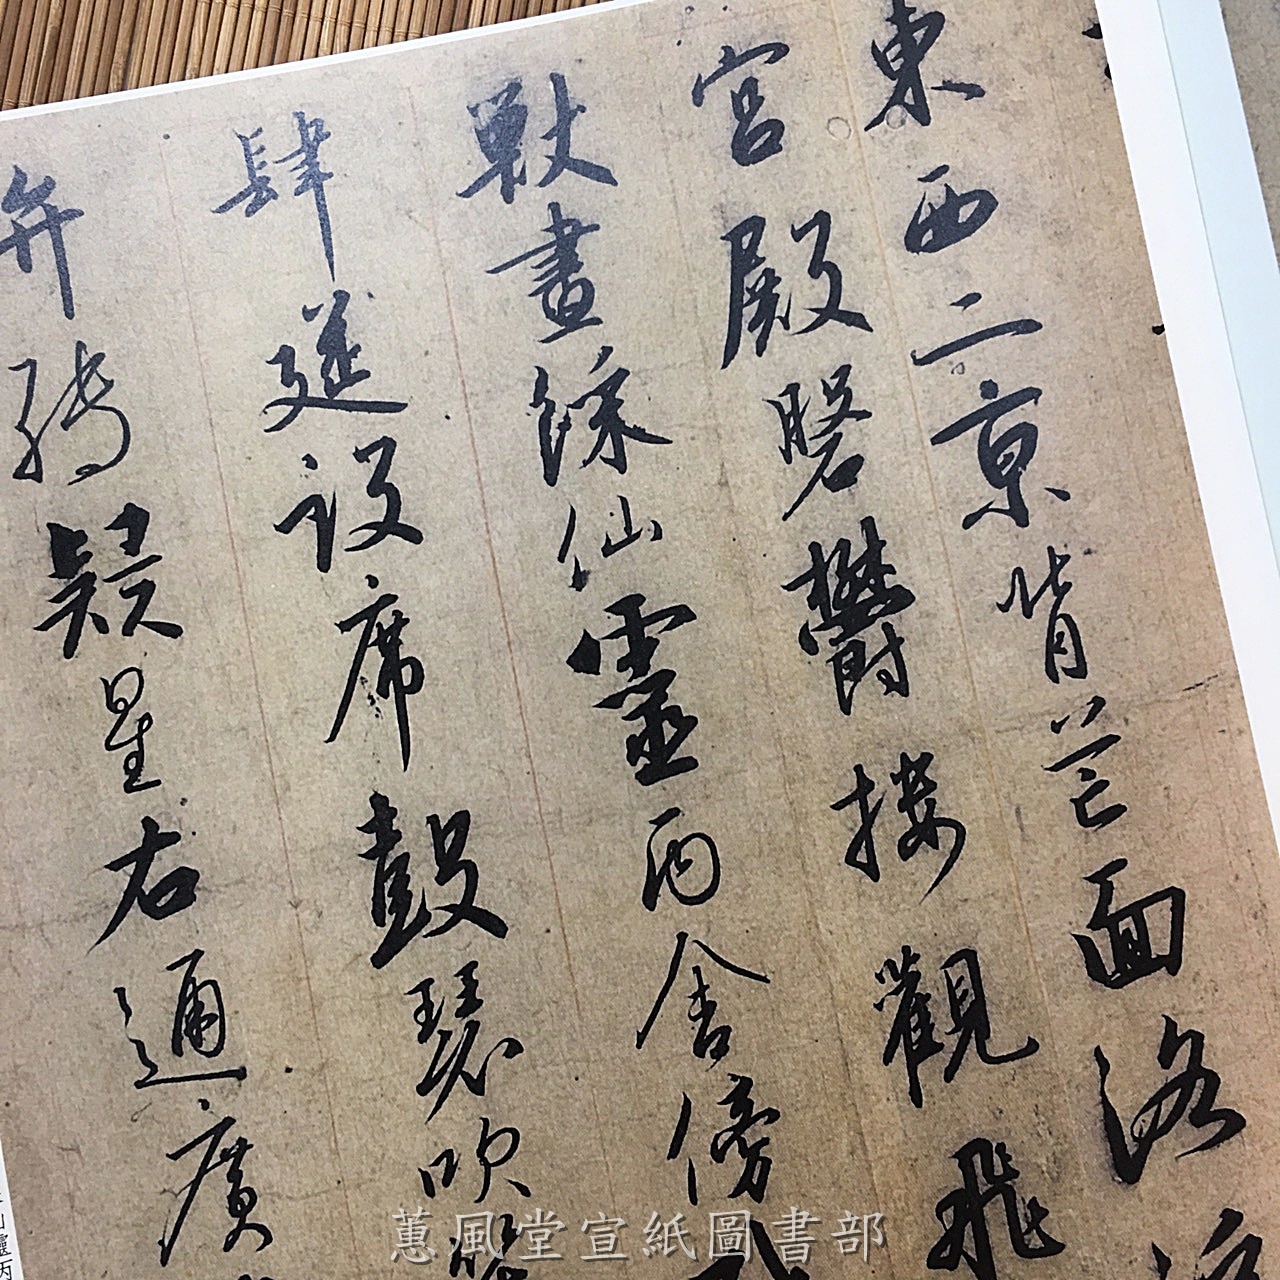 東西二京背芒面洛浮
宮殿磐鬱樓觀飛
獸畫綵仙靈丙舍傍
肆筵設席鼓瑟吹笙
弁轉疑星右通廣
蕙風堂宣紙圖書部